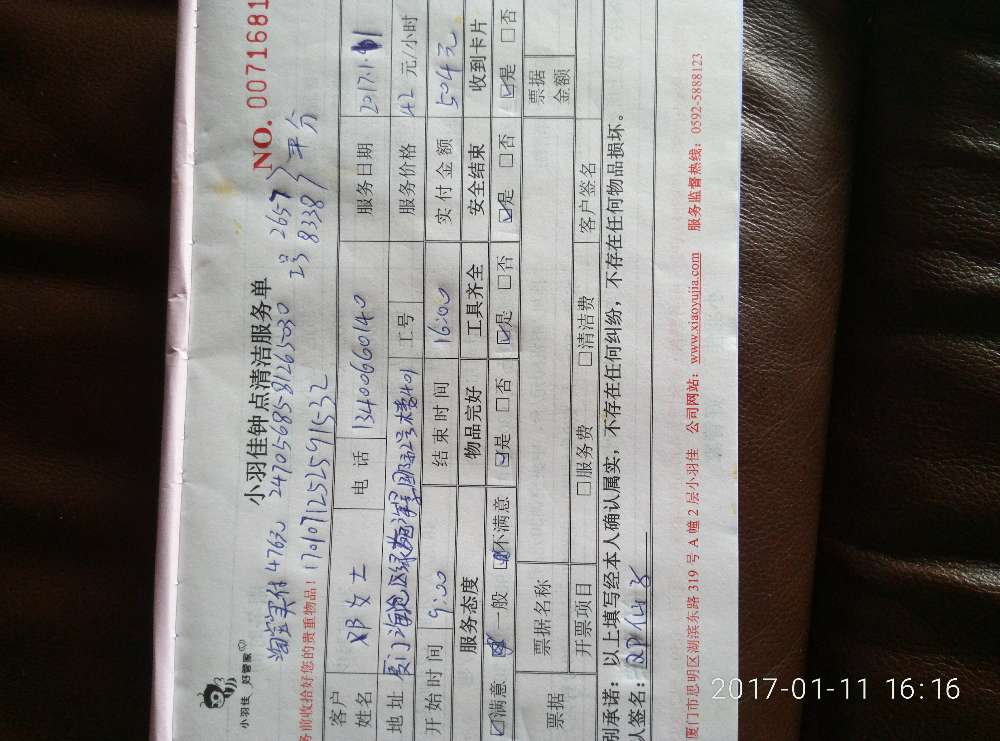 小羽佳 好管家
小羽佳钟点清洁服务单
NO. 0071681
淘宝美付476元 24705685-81265030 2号 2657 平分
8338
务前收拾好您的贵重物品！ 17010712525915 32
客户姓名 邓女士 电话 13400660140 服务日期 2017.1.11
地址 厦门 2号楼401 工号 服务价格 42元/小时
开始时间 9:20 结束时间 16:00 实付金额 504元
服务态度 物品完好 工具齐全 安全结束 收到卡片
☑满意 一般 不满意 ☑是 □否 ☑是 □否 ☑是 □否 ☑是 □否
票据 票据名称 票据金额
开票项目 □服务费 □清洁费 客户签名
别承诺：以上填写经本人确认属实，不存在任何纠纷，不存在任何物品损坏。
人签名：
厦门市思明区湖滨东路 319 号 A 幢 2 层小羽佳 公司网站：www.xiaoyujia.com 服务监督热线：0592-5888123
2017-01-11 16:16